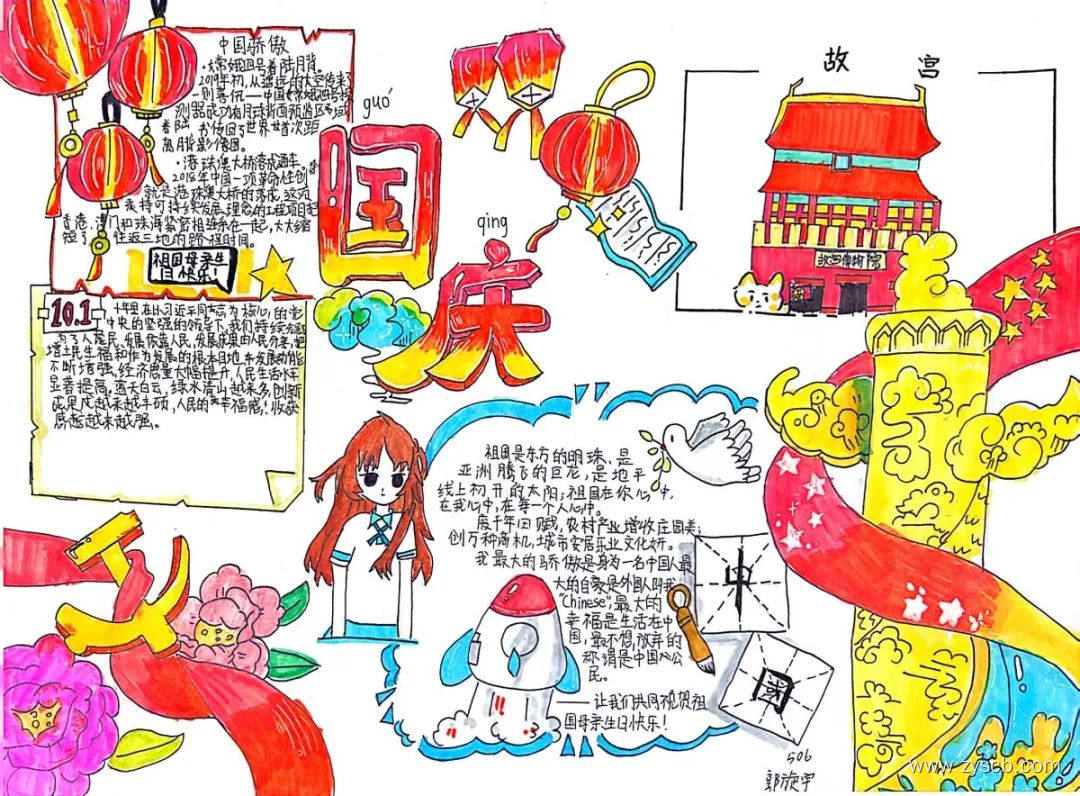 中国骄傲
·大嫦娥四号着陆月背。
2019年初,从遥远的太空传来了
一则喜讯——中国嫦娥四号探
测器成功在月球背面预选区域
着陆 并传回了世界首次近距
离月背影像图。
·港珠澳大桥落成通车。
2018年中国一项革命性创
就是港珠澳大桥的落成,这项
秉持可持续发展理念的工程项目把
香港、澳门和珠海紧密相连系在一起,大大缩
短了 往返三地的路程时间。
祖国母亲生
日快乐!
guó
国
qìng
庆
10.1
十年里在以习近平同志为核心的党
中央的坚强的领导下,我们持续
为了人民,发展依靠人民,发展成果由人民分享,把
增进民生福和作为发展的根本目地,
不断增强,经济质量大幅提升,人民生活水平
显著提高,蓝天白云,绿水清山越来多,创新
成果 越来越丰硕,人民的幸福感!收获
感越越来越强。
故 宫
故宫博物院
祖国是东方的明珠,是
亚洲腾飞的巨龙,是地平
线上初升的太阳;祖国在你心中,
在我心中,在每一个人心中。
废千年田赋,农村产业增收庄园美;
创万种商机,城市安居乐业文化妍。
我最大的骄傲是身为一名中国人最
大的自豪是外国人叫我
"Chinese",最大的
幸福是生活在中
国,最不想放弃的
称谓是中国公
民。
——让我们共同祝贺祖
国母亲生日快乐!
中
國
506
www.zyscb.com